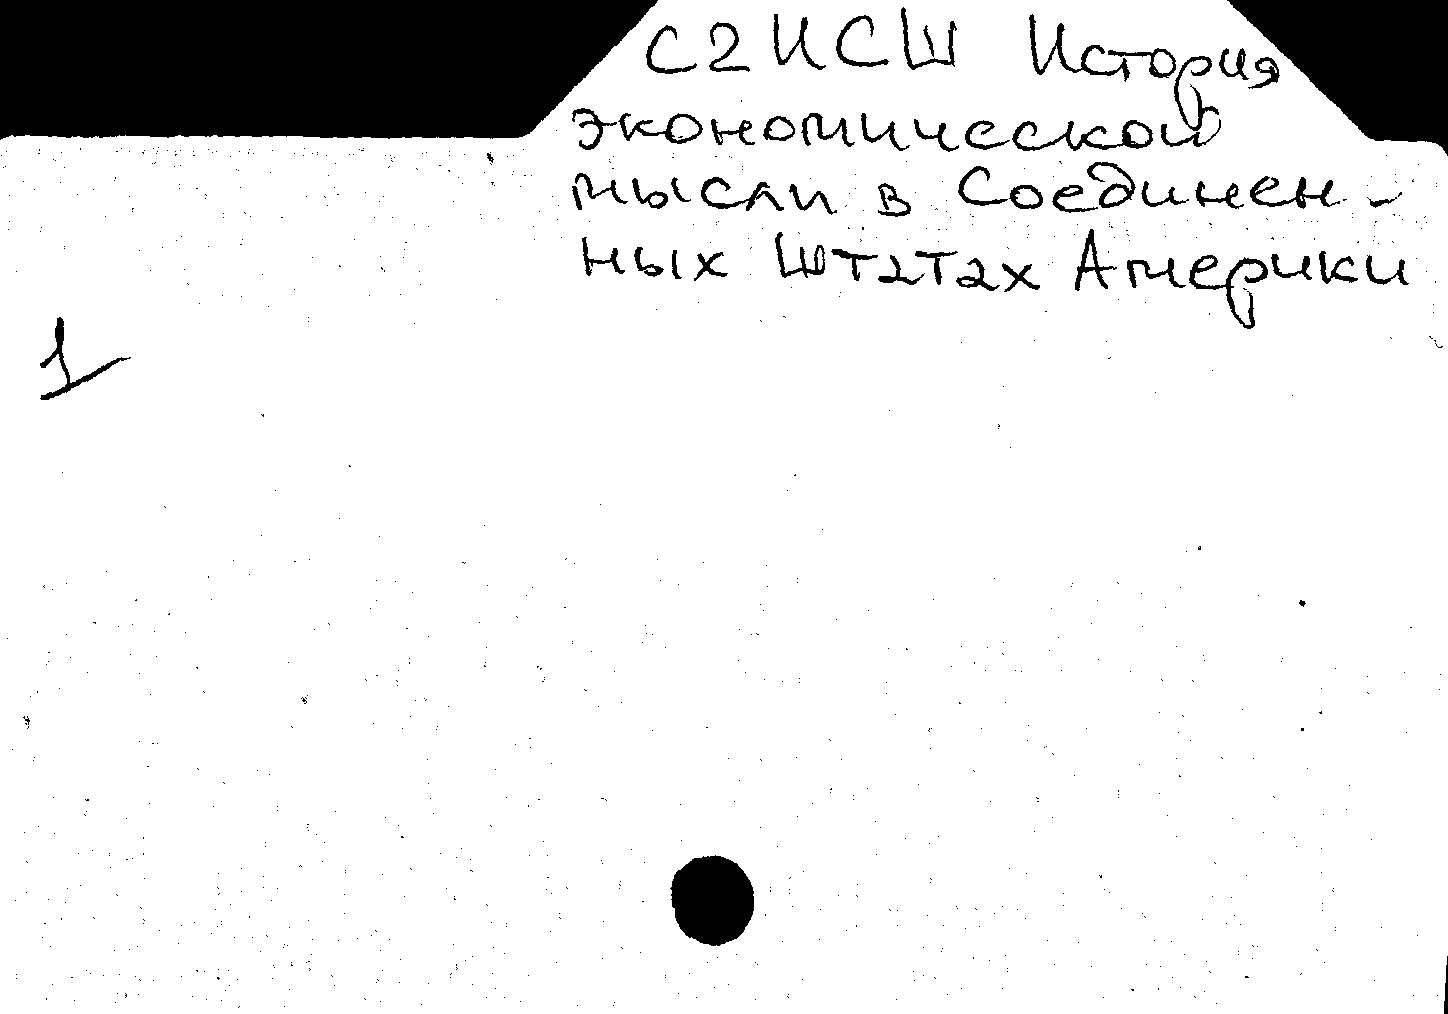 С2ИСШ История
экономической
мысли в Соединен-
ных Штатах Америки
1